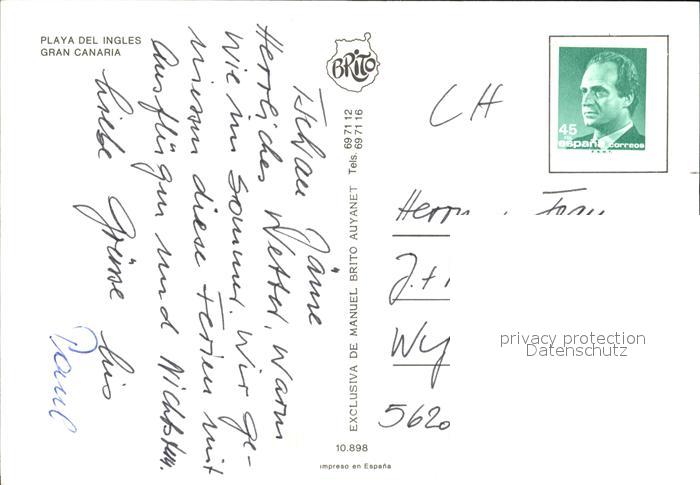 PLAYA DEL INGLES
GRAN CANARIA
BRITO
Herrliches Wetter, warm
wie im Sommer. Wir ge-
niessen diese Ferien mit
Ausflügen und Nichtstun.
Liebe Grüsse
EXCLUSIVA DE MANUEL BRITO AUYANET Tels. 69 71 12
69 71 16
10.898
Impreso en España
CH
45
españa correos
Herrn
Wy
5620
privacy protection
Datenschutz